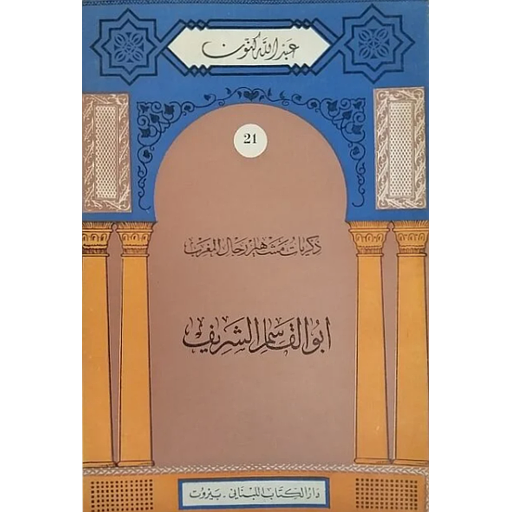 عبد الله كنون
21
ذكريات مشاهير رجال المغرب
ابو القاسم الشريف
دار الكتاب اللبناني . بيروت